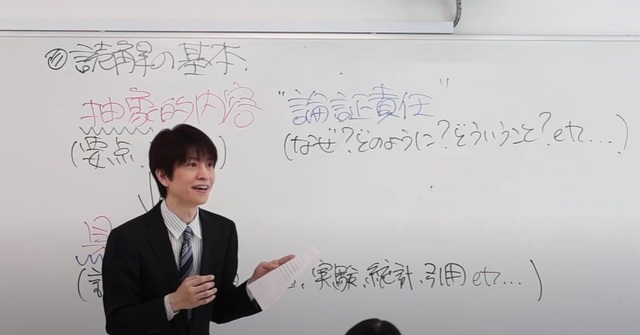 ⑦ 読解の基本
抽象的内容 "論証責任"
(要点 ) (なぜ?どのように?どういうこと?etc...)
具
実験、統計、引用etc...)